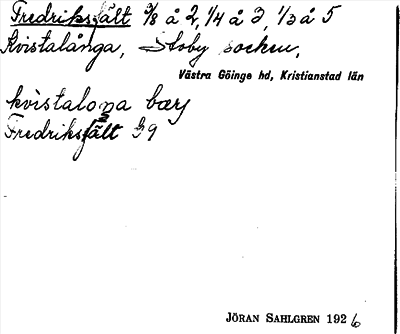 Fredriksfält 3/8 å 2, 1/4 å 3, 1/3 å 5
Kvistalånga, Stoby socken,
Västra Göinge hd, Kristianstad län
kvistaloŋa bærj
Fredriksfält 39
JÖRAN SAHLGREN 1926